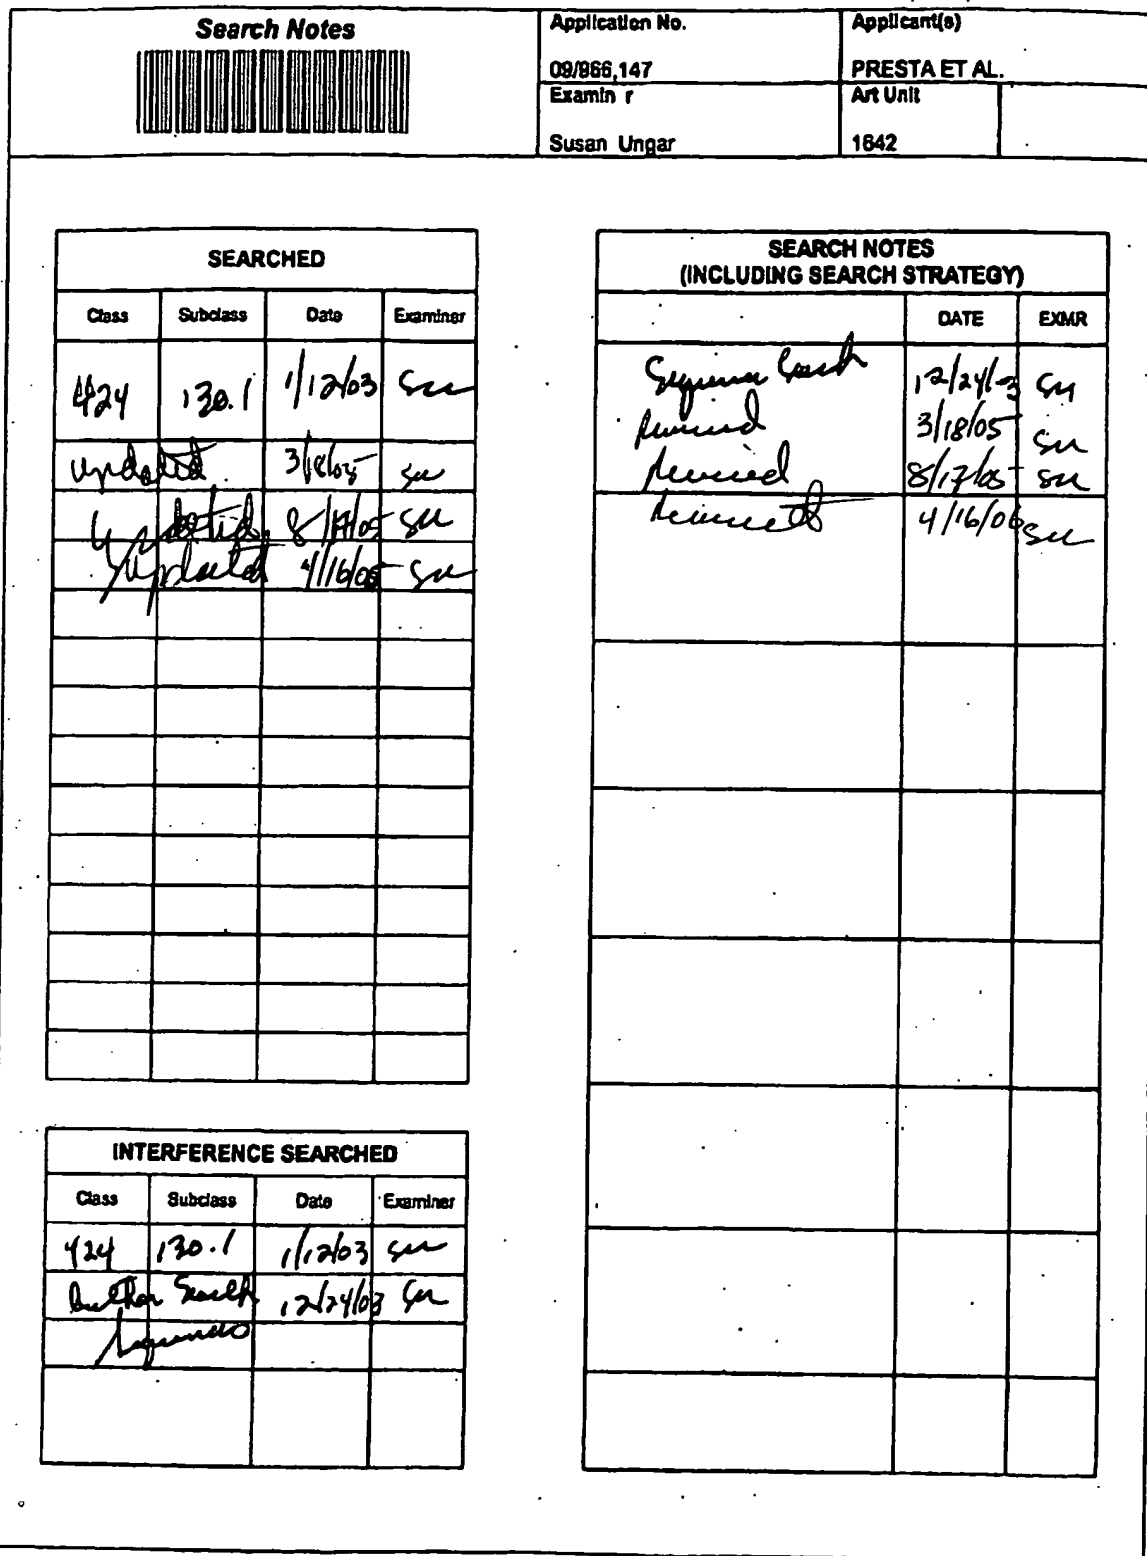 Search Notes
Application No.
Applicant(s)
09/866,147
PRESTA ET AL.
Examin r
Art Unit
Susan Ungar
1642
SEARCHED
Class Subclass Date Examiner
424 130.1 1/12/03 su
updated 3/18/05 su
updated 8/17/05 su
updated 4/16/05 su
SEARCH NOTES
(INCLUDING SEARCH STRATEGY)
DATE EXMR
Search 12/24/03 su
3/18/05 su
8/17/05 su
4/16/06 su
INTERFERENCE SEARCHED
Class Subclass Date Examiner
424 130.1 1/12/03 su
Author Search 12/24/03 su